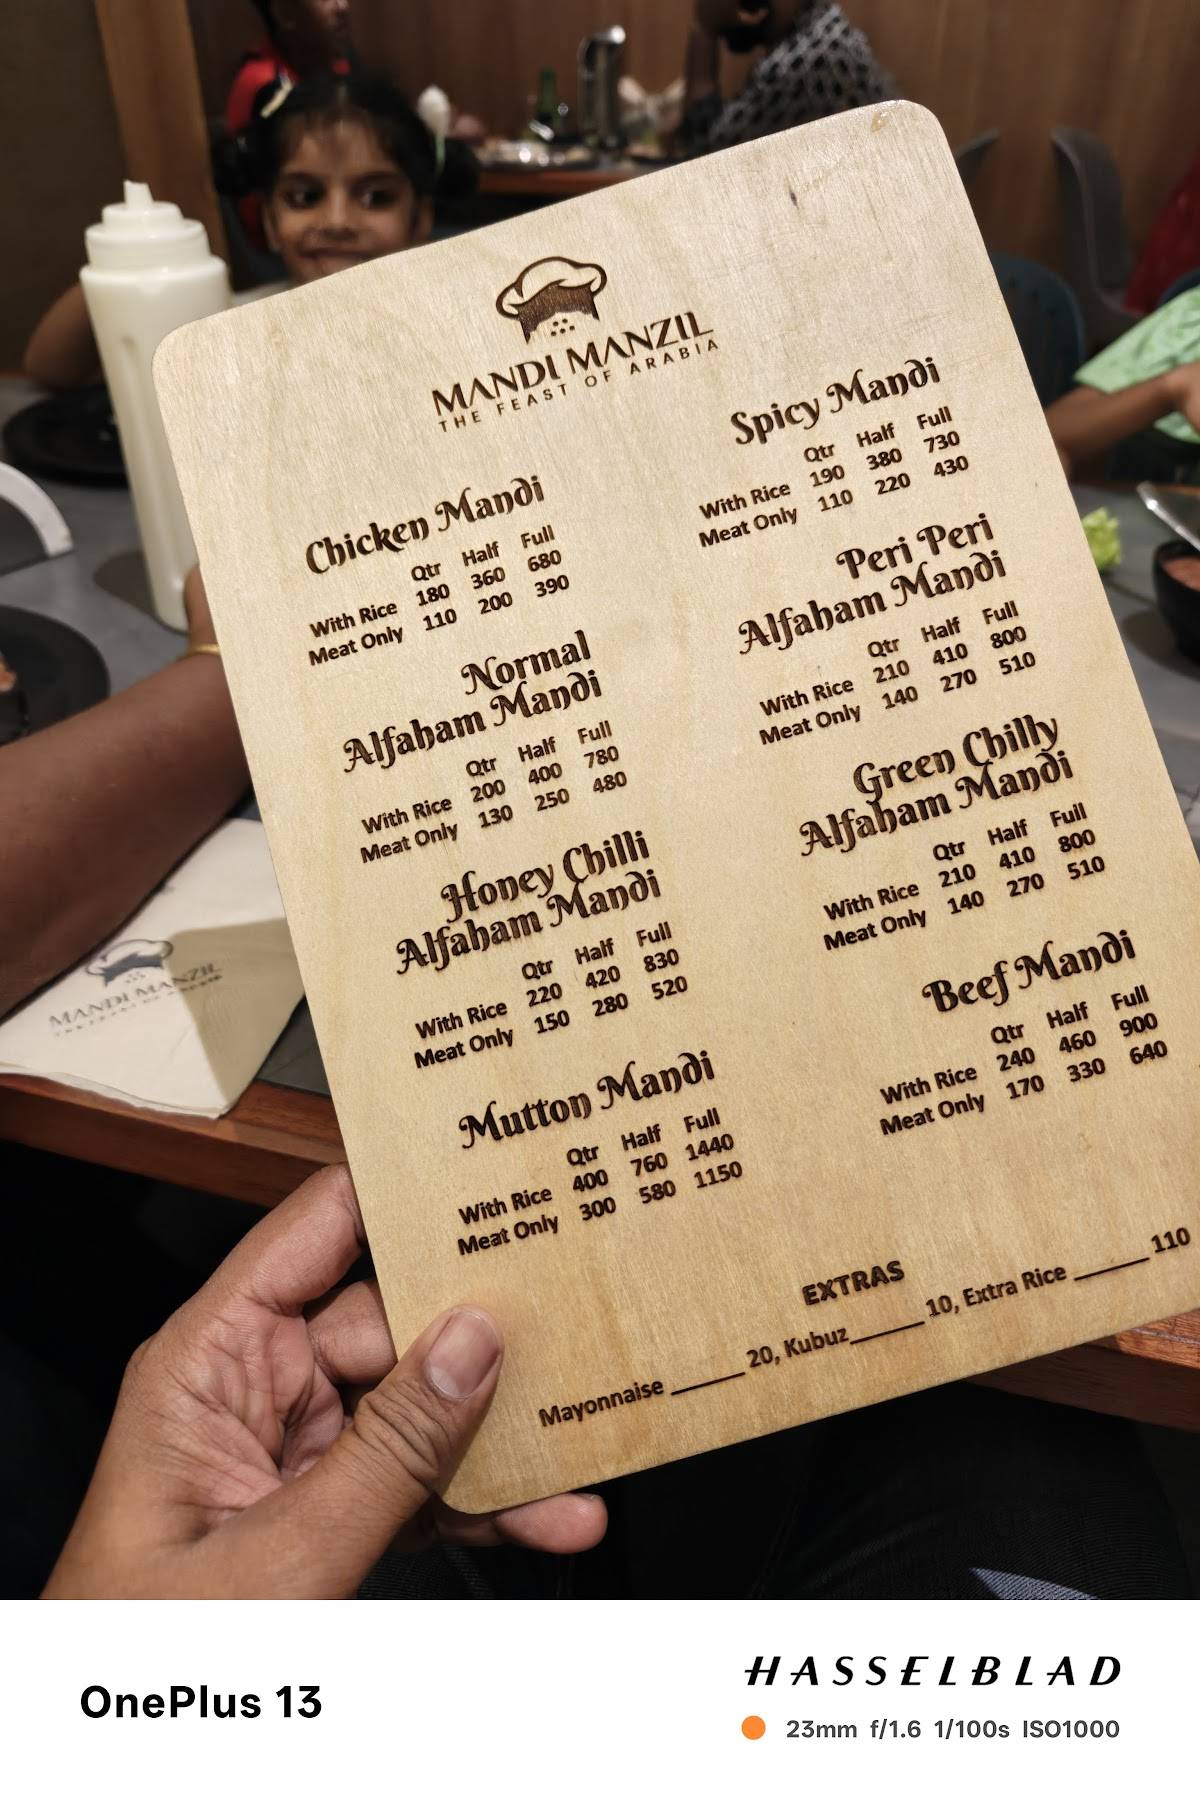 MANDI MANZIL
THE FEAST OF ARABIA
Chicken Mandi
Qtr Half Full
With Rice 180 360 680
Meat Only 110 200 390
Normal
Alfaham Mandi
Qtr Half Full
With Rice 200 400 780
Meat Only 130 250 480
Honey Chilli
Alfaham Mandi
Qtr Half Full
With Rice 220 420 830
Meat Only 150 280 520
Mutton Mandi
Qtr Half Full
With Rice 400 760 1440
Meat Only 300 580 1150
Spicy Mandi
Qtr Half Full
With Rice 190 380 730
Meat Only 110 220 430
Peri Peri
Alfaham Mandi
Qtr Half Full
With Rice 210 410 800
Meat Only 140 270 510
Green Chilly
Alfaham Mandi
Qtr Half Full
With Rice 210 410 800
Meat Only 140 270 510
Beef Mandi
Qtr Half Full
With Rice 240 460 900
Meat Only 170 330 640
EXTRAS
Mayonnaise ______ 20, Kubuz ______ 10, Extra Rice ______ 110
MANDI MANZIL
OnePlus 13
HASSELBLAD
23mm f/1.6 1/100s ISO1000